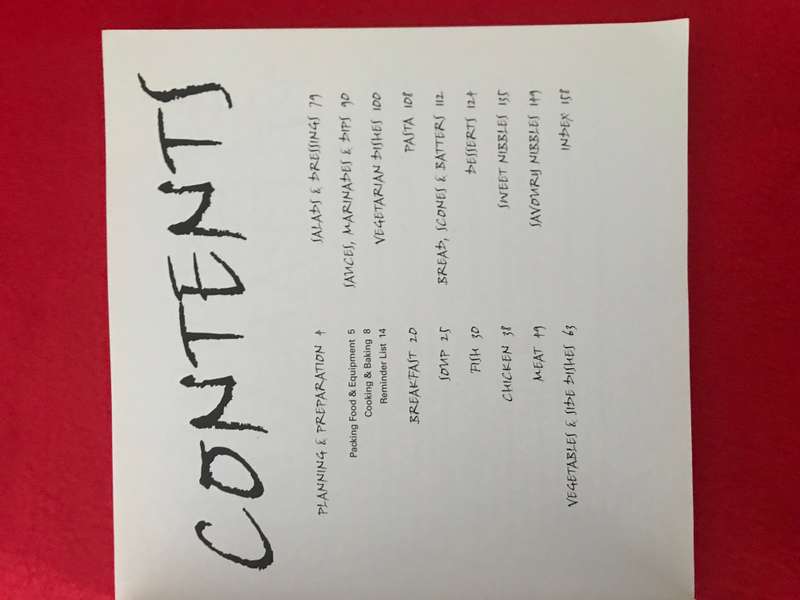 CONTENTS
PLANNING & PREPARATION 4
Packing Food & Equipment 5
Cooking & Baking 8
Reminder List 14
BREAKFAST 20
SOUP 25
FISH 30
CHICKEN 38
MEAT 49
VEGETABLES & SIDE DISHES 63
SALADS & DRESSINGS 79
SAUCES, MARINADES & DIPS 90
VEGETARIAN DISHES 100
PASTA 108
BREAD, SCONES & BATTERS 112
DESSERTS 124
SWEET NIBBLES 135
SAVOURY NIBBLES 149
INDEX 158